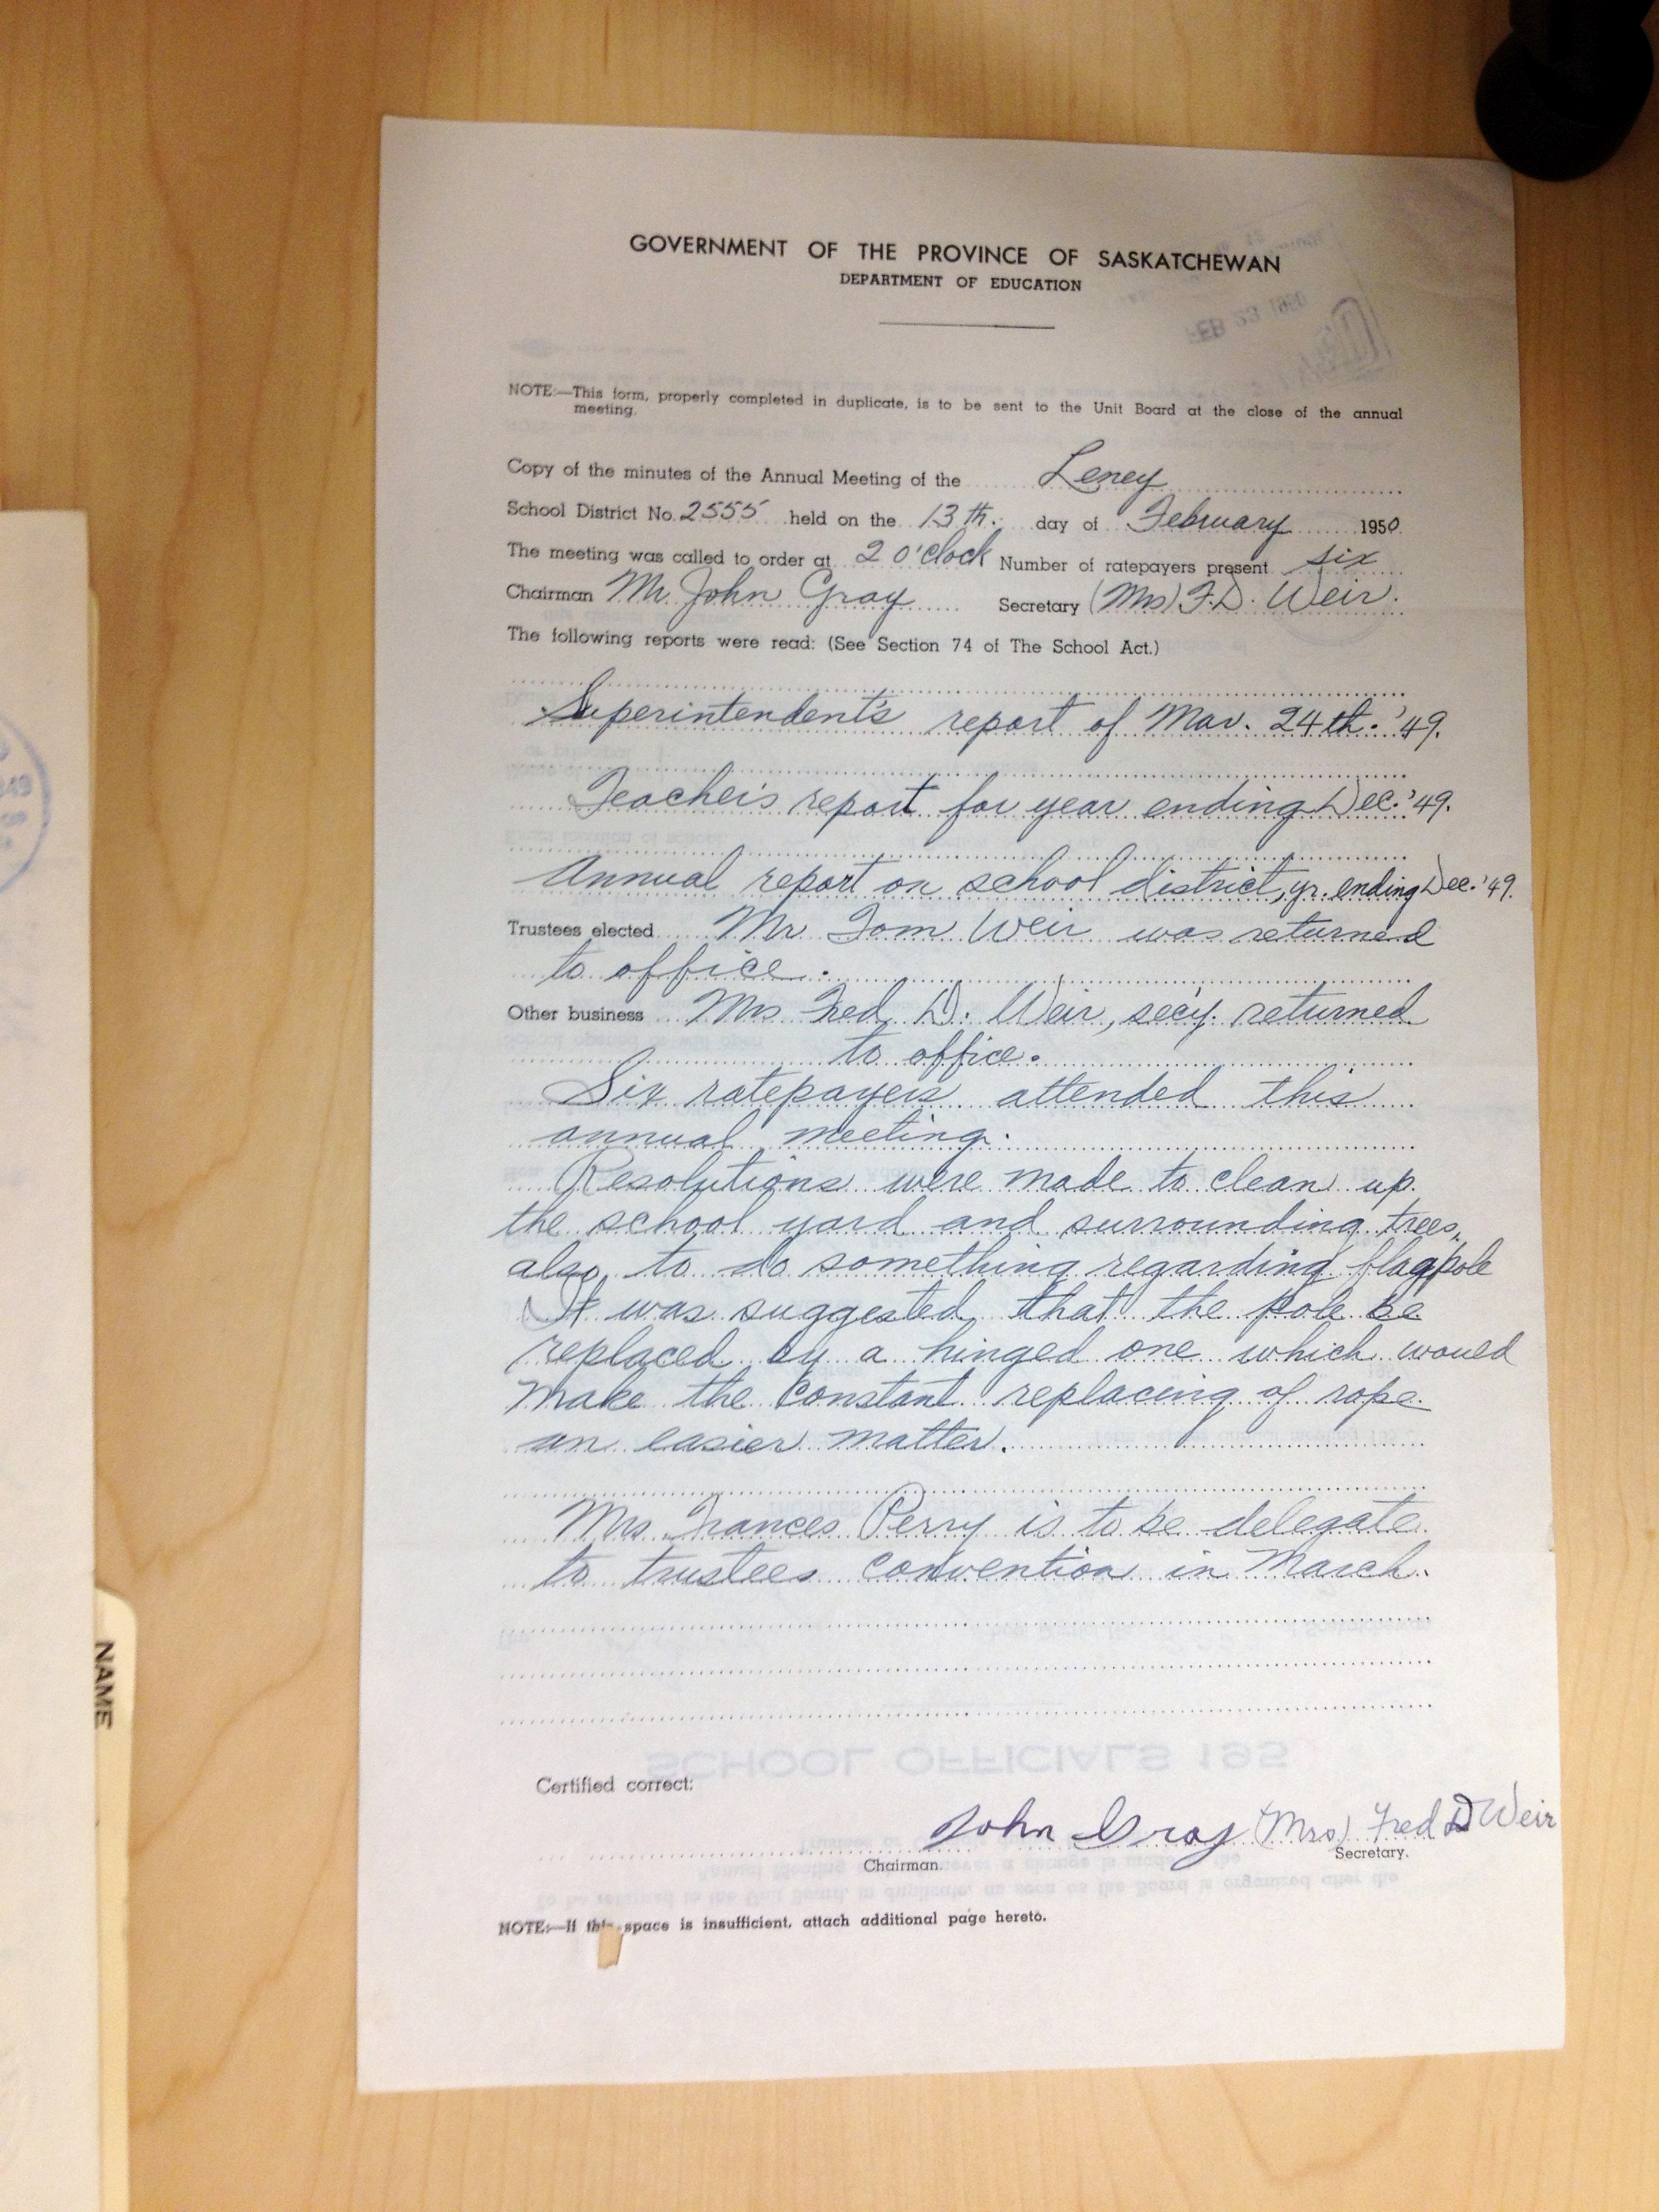 GOVERNMENT OF THE PROVINCE OF SASKATCHEWAN
DEPARTMENT OF EDUCATION
FEB 23 1950
NOTE:—This form, properly completed in duplicate, is to be sent to the Unit Board at the close of the annual
meeting.
Copy of the minutes of the Annual Meeting of the Leney
School District No. 2555 held on the 13th. day of February 1950
The meeting was called to order at 2 o'clock Number of ratepayers present six
Chairman Mr. John Gray Secretary (Mrs) F.D. Weir.
The following reports were read: (See Section 74 of The School Act.)
Superintendent's report of Mar. 24th. '49.
Teacher's report for year ending Dec. '49.
Annual report on school district, yr. ending Dec. '49.
Trustees elected Mr Tom Weir was returned
to office.
Other business Mrs Fred D. Weir, sec'y. returned
to office.
Six ratepayers attended this
annual meeting.
Resolutions were made to clean up
the school yard and surrounding trees,
also to do something regarding flagpole
It was suggested that the pole be
replaced by a hinged one which would
make the constant replacing of rope
an easier matter.
Mrs Frances Perry is to be delegate
to trustees convention in March.
SCHOOL OFFICIALS 195
Certified correct:
John Gray (Mrs) Fred D Weir
Chairman. Secretary.
NOTE:—If this space is insufficient, attach additional page hereto.
NAME